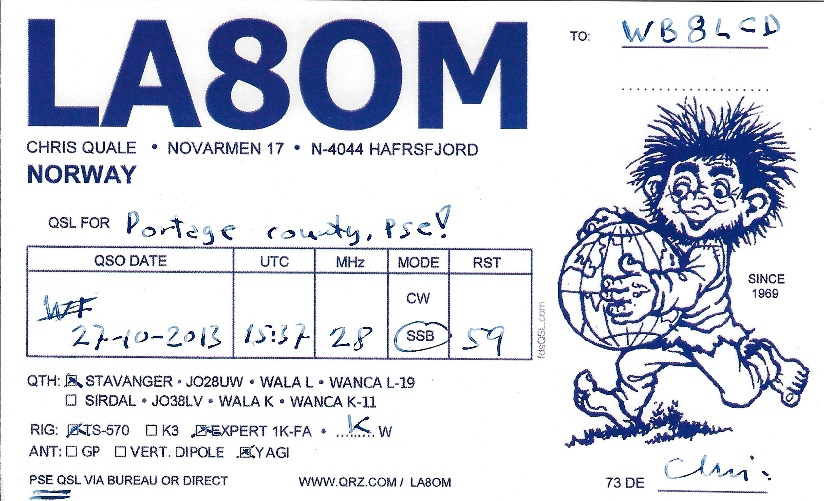 LA8OM
TO: WB8LCD
CHRIS QUALE • NOVARMEN 17 • N-4044 HAFRSFJORD
NORWAY
QSL FOR Portage county, pse!
QSO DATE UTC MHz MODE RST
CW
27-10-2013 15:37 28 SSB 59
SINCE
1969
fdsQSL.com
QTH: STAVANGER • JO28UW • WALA L • WANCA L-19
SIRDAL • JO38LV • WALA K • WANCA K-11
RIG: TS-570 K3 EXPERT 1K-FA • K W
ANT: GP VERT. DIPOLE YAGI
PSE QSL VIA BUREAU OR DIRECT WWW.QRZ.COM / LA8OM 73 DE Chris